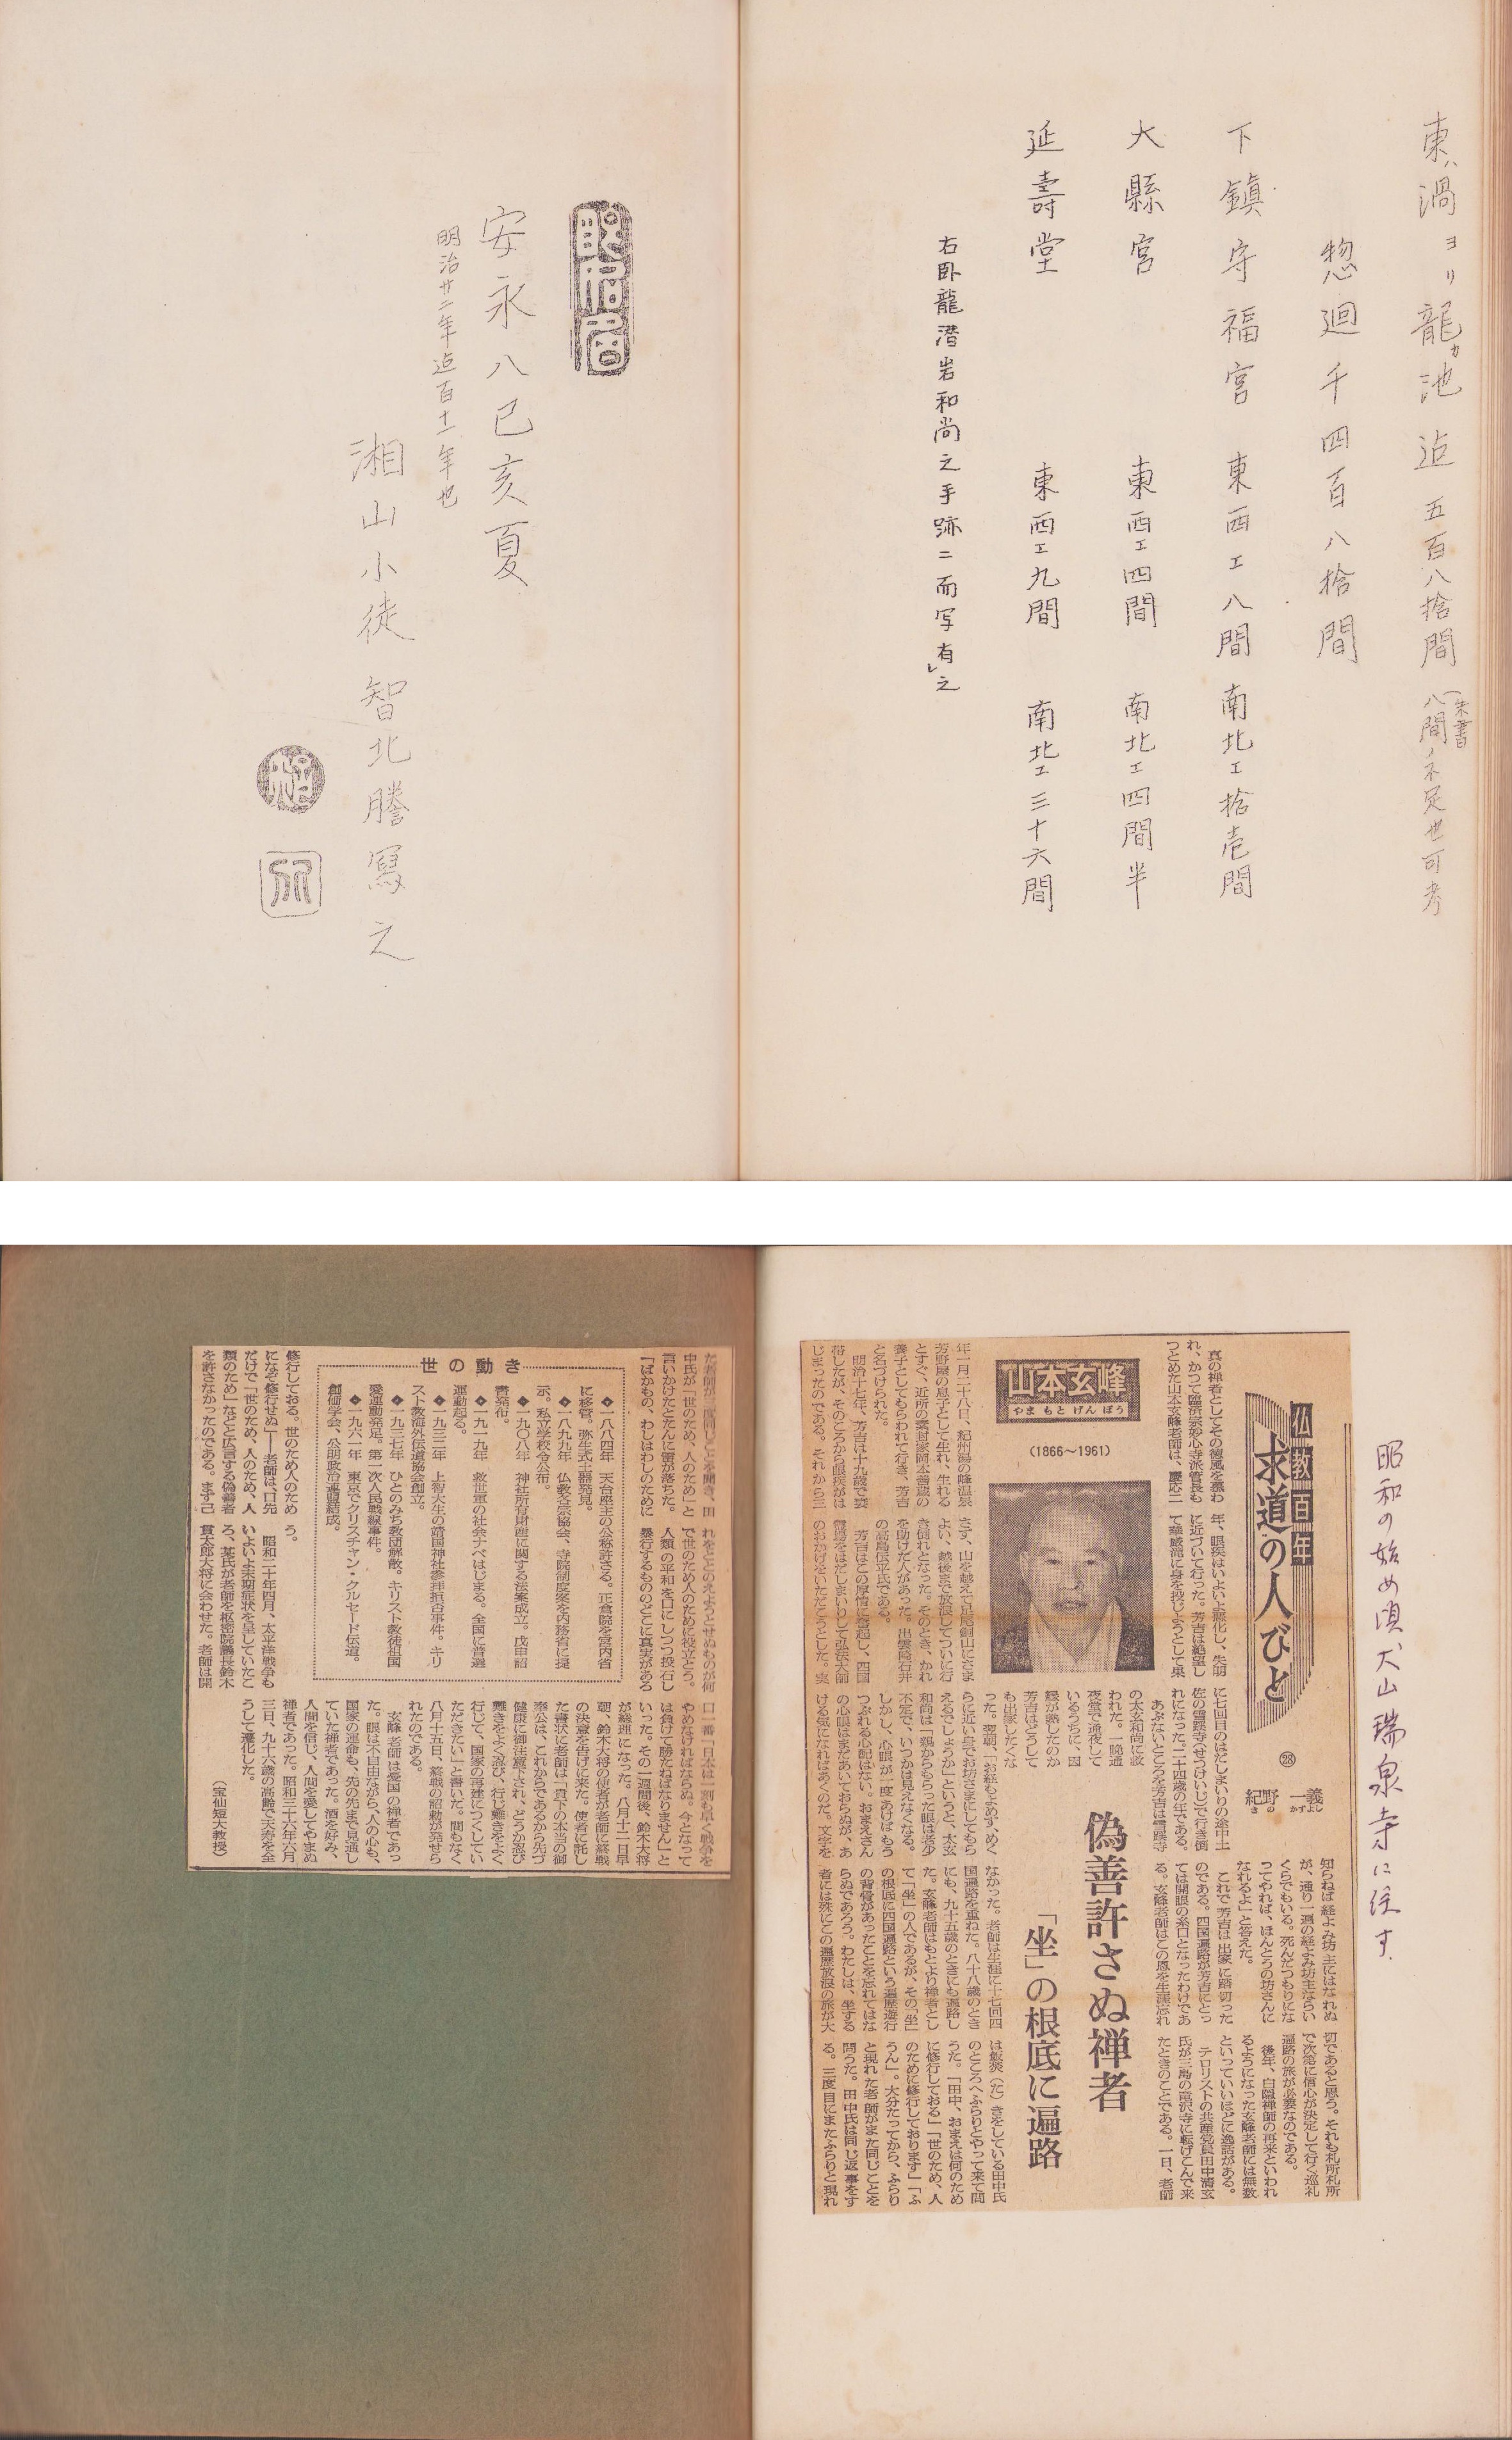 東ハ渦ヨリ龍カ池迄 五百八拾間
(朱書
八間ノ不足也可考
惣廻千四百八拾間
下鎮守福宮 東西エ八間 南北エ拾壱間
大縣宮 東西エ四間 南北エ四間半
延壽堂 東西エ九間 南北エ三十六間
右臥龍潜岩和尚之手跡ニ而写有レ之
安永八己亥夏
明治廿二年迄百十一年也
湘山小徒 智北謄寫之
昭和の始め頃犬山瑞泉寺に住す
仏教百年
求道の人びと
㉘
紀野 一義
きの かずよし
偽善許さぬ禅者
「坐」の根底に遍路
山本玄峰
やまもとげんぽう
(1866〜1961)
真の禅者としてその徳風を慕わ
れ、かつて臨済宗妙心寺派管長も
つとめた山本玄峰老師は、慶応二
年一月二十八日、紀州湯の峰温泉
芳野屋の息子として生れ、生れる
とすぐ、近所の素封家岡本善蔵の
養子としてもらわれて行き、芳吉
と名づけられた。
明治十七年、芳吉は十九歳で妻
帯したが、そのころから眼疾がは
じまったのである。それから三
年、眼疾はいよいよ悪化し、失明
に近づいて行った。芳吉は絶望し
て華厳滝に身を投じようとして果
さず、山を越えて足尾銅山にさま
よい、越後まで放浪してついに行
き倒れとなった。そのとき、かれ
を助けた人があった。出雲崎石井
の高島伝平氏である。
芳吉はこの厚情に奮起し、四国
霊場をはだしまいりして弘法大師
のおかげをいただこうとした。実
に七回目のはだしまいりの途中土
佐の雪蹊寺(せっけいじ)で行き倒
れになった。二十四歳の年である。
あぶないところを芳吉は雪蹊寺
の太玄和尚に救
われた。一晩通
夜堂で通夜して
いるうちに、因
縁が熟したのか
芳吉はどうして
も出家したくな
った。翌朝、「お経もよめず、めく
らに近い身でお坊さまにしてもら
えるでしょうか」というと、太玄
和尚は「親からもらった眼は老少
不定で、いつかは見えなくなる。
しかし、心眼が一度あけばもう
つぶれる心配はない。おまえさん
の心眼はまだあいておらぬが、あ
ける気になればあくのだ。文字を
知らねば経よみ坊主にはなれぬ
が、通り一遍の経よみ坊主ならい
くらでもいる。死んだつもりにな
ってやれば、ほんとうの坊さんに
なれるよ」と答えた。
これで芳吉は出家に踏切った
のである。四国遍路が芳吉にとっ
ては開眼の糸口となったわけであ
る。玄峰老師はこの恩を生涯忘れ
なかった。老師は生涯に十七回四
国遍路を重ねた。八十八歳のとき
にも、九十五歳のときにも遍路し
た。玄峰老師はもとより禅者とし
て「坐」の人であるが、その「坐」
の根底に四国遍路という遍歴遊行
の背骨があったことを忘れてはな
らぬであろう。わたしは、坐する
者には殊にこの遍歴放浪の旅が大
切であると思う。それも札所札所
で次第に信心が決定して行く巡礼
遍路の旅が必要なのである。
後年、白隠禅師の再来といわれ
るようになった玄峰老師には無数
といっていいほどに逸話がある。
テロリストの共産党員田中清玄
氏が三島の竜沢寺に転げこんで来
たときのことである。一日、老師
は飯焚(た)きをしている田中氏
のところへふらりとやって来て問
うた。「田中、おまえは何のため
に修行しておる」「世のため、人
のために修行しております」「ふ
うん」。大分たってから、ふらり
と現れた老師がまた同じことを
問うた。田中氏は同じ返事をす
る。三度目にまたふらりと現れ
た老師が三度同じことを聞き、田
中氏が「世のため、人のため」と
言いかけたとたんに雷が落ちた。
「ばかもの、わしはわしのために
修行しておる。世のため人のため
になぞ修行せぬ」――老師は、口先
だけで「世のため、人のため、人
類のため」などと広言する偽善者
を許さなかったのである。まず己
れをととのえようとせぬものが何
で世のため人のために役立とう。
人類の平和を口にしつつ投石し
暴行するもののどこに真実があろ
う。
昭和二十年四月、太平洋戦争も
いよいよ末期症状を呈していたこ
ろ、某氏が老師を枢密院議長鈴木
貫太郎大将に会わせた。老師は開
口一番「日本は一刻も早く戦争を
やめなければならぬ。今となって
は負けて勝たねばなりません」と
いった。その一週間後、鈴木大将
が総理になった。八月十二日早
朝、鈴木大将の使者が老師に終戦
の決意を告げに来た。使者に託し
た書状に老師は「貴下の本当の御
奉公は、これからであるから先づ
健康に御注意下され、どうか忍び
難きをよく忍び、行じ難きをよく
行じて、国家の再建につくしてい
ただきたい」と書いた。間もなく
八月十五日、終戦の詔勅が発せら
れたのである。
玄峰老師は憂国の禅者であっ
た。眼は不自由ながら、人の心も、
国家の運命も、先の先まで見通し
ていた禅者であった。酒を好み、
人間を信じ、人間を愛してやまぬ
禅者であった。昭和三十六年六月
三日、九十六歳の高齢で天寿を全
うして遷化した。
(宝仙短大教授)
世の動き
◆一八八四年 天台座主の公称許さる。正倉院を宮内省
に移管。弥生式土器発見。
◆一八九九年 仏教各宗協会、寺院制度案を内務省に提
示。私立学校令公布。
◆一九〇八年 神社所有財産に関する法案成立。戊申詔
書発布。
◆一九一九年 救世軍の社会ナベはじまる。全国に普選
運動起る。
◆一九三二年 上智大生の靖国神社参拝拒否事件。キリ
スト教海外伝道協会創立。
◆一九三七年 ひとのみち教団解散。キリスト教徒祖国
愛運動発足。第一次人民戦線事件。
◆一九六一年 東京でクリスチャン・クルセード伝道。
創価学会、公明政治連盟結成。